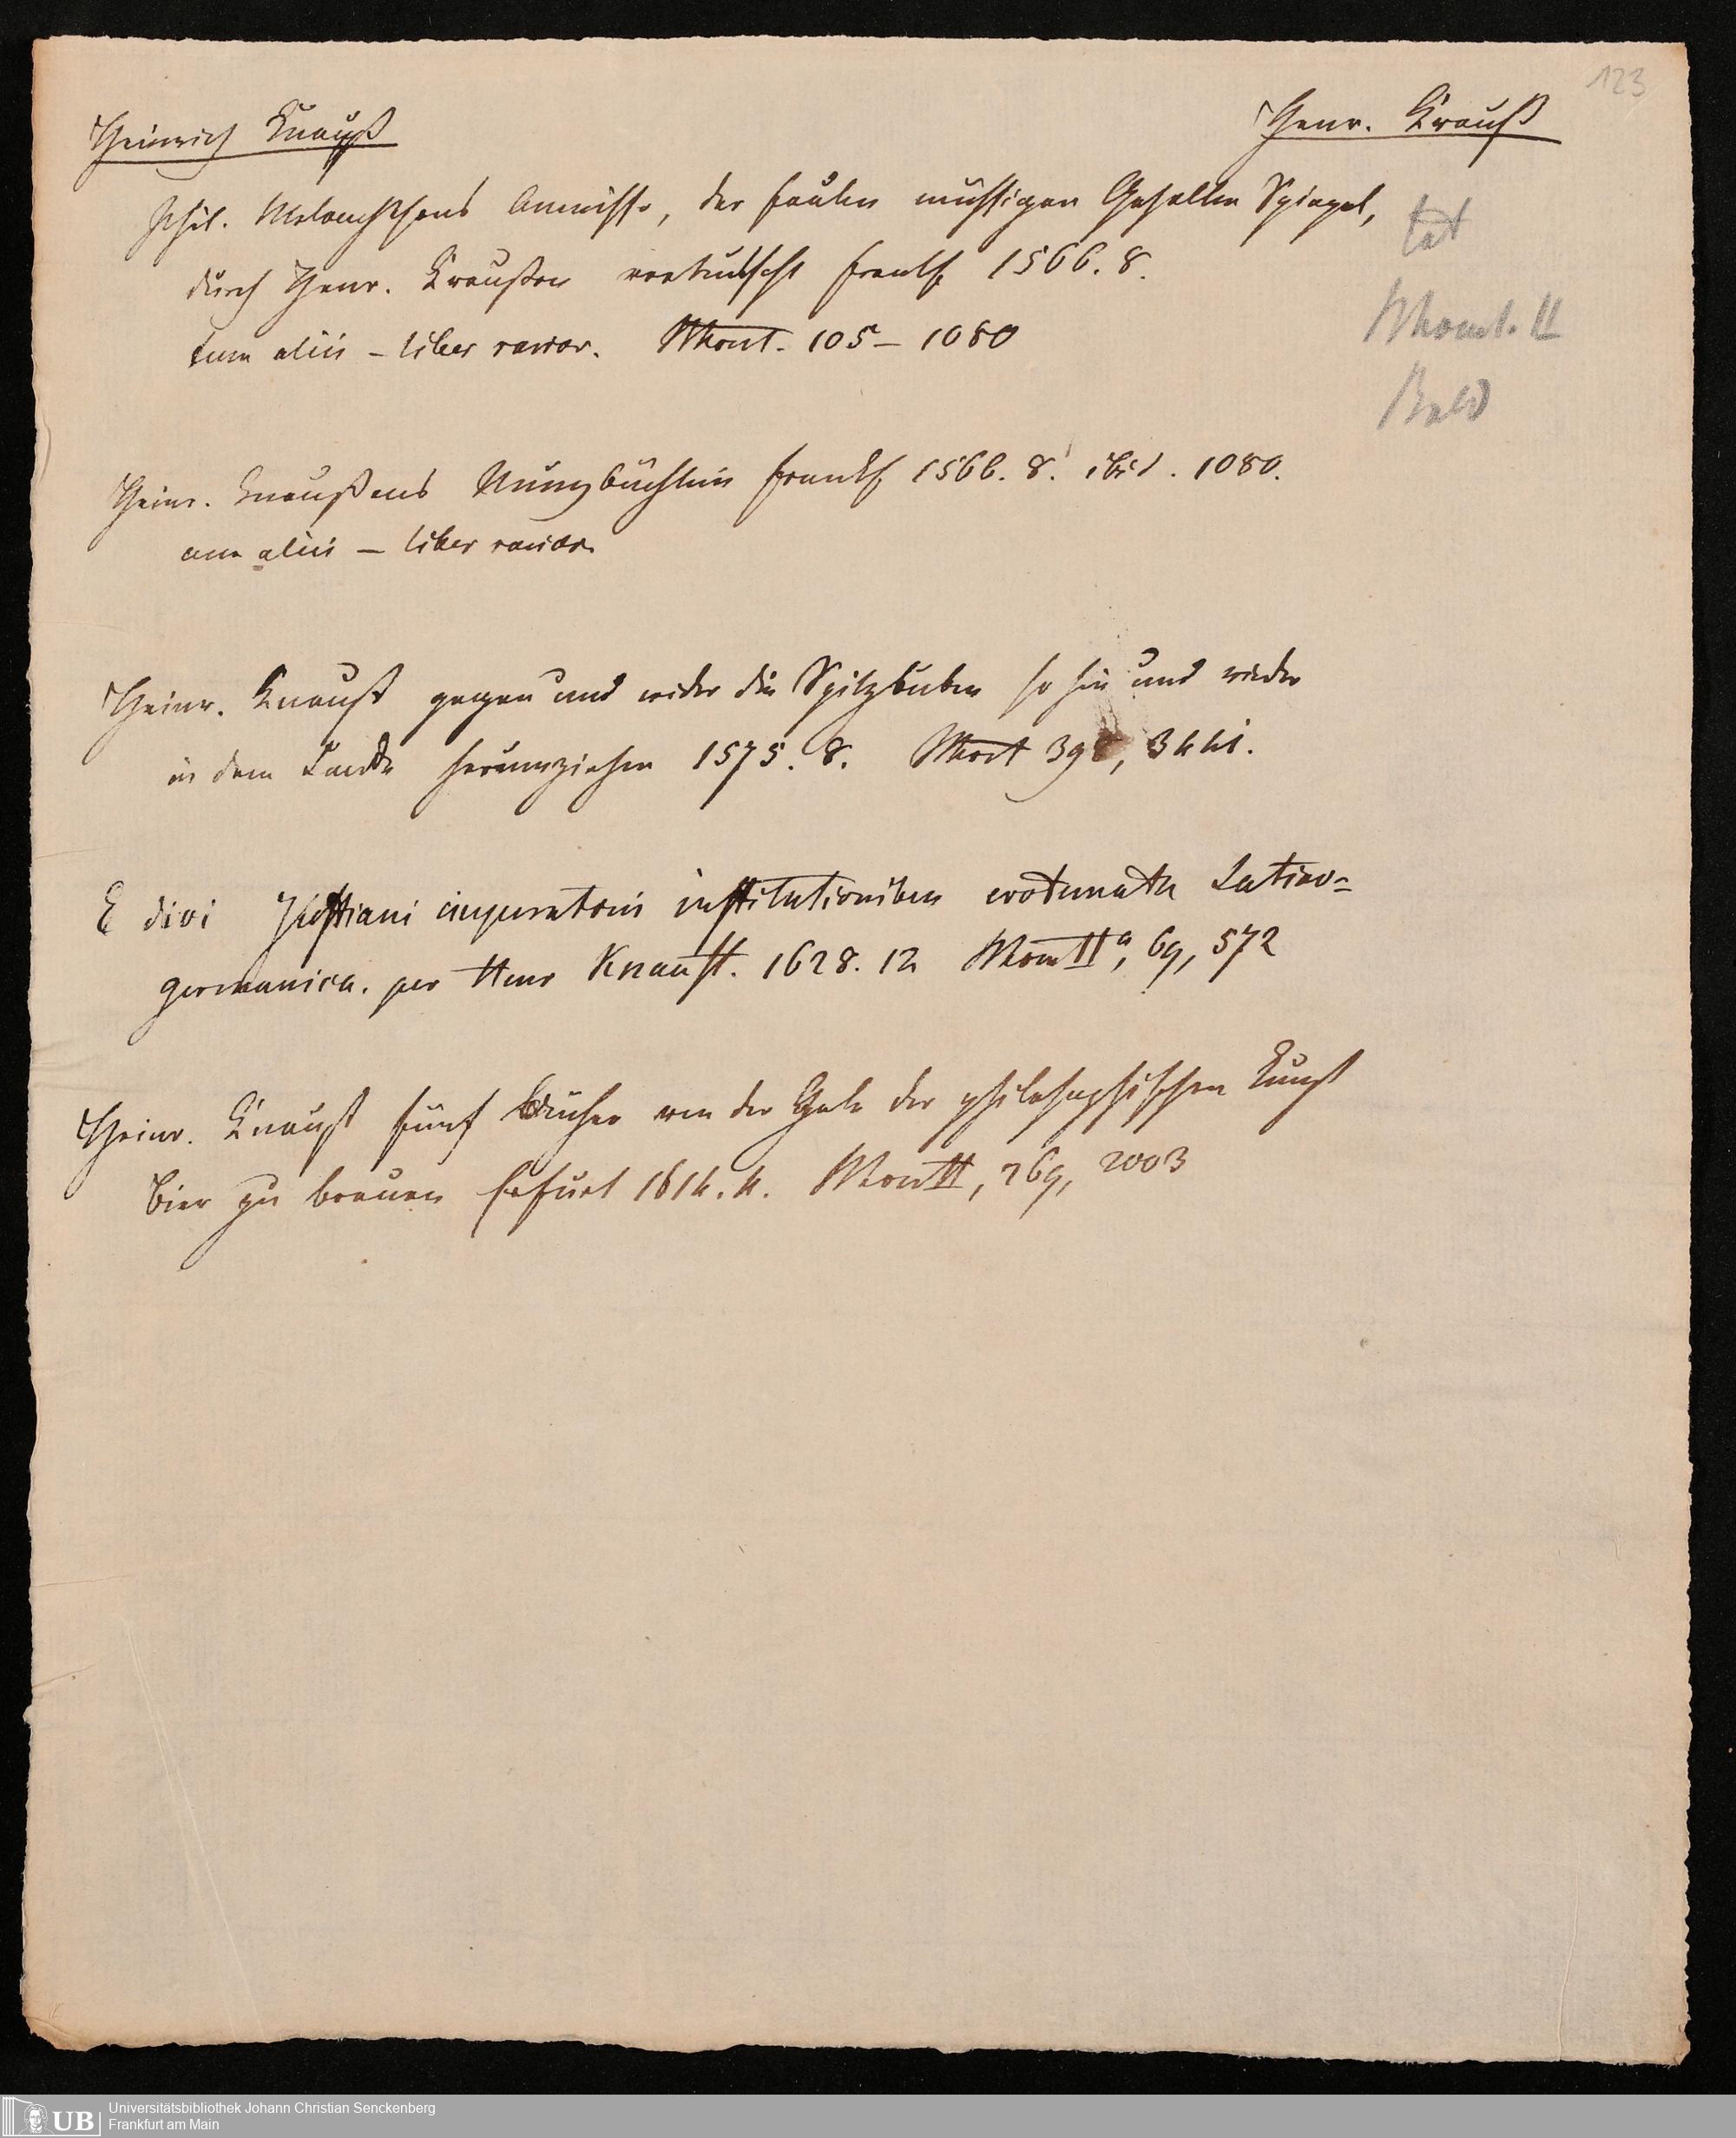 123
Heinrich Knaust
Henr. Krauß
Phil. Melanchthons Ameisse, der faulen müssigen Gesellen Spiegel,
durch Henr. Kraußen verteutscht Frankf 1566. 8.
cum aliis – liber rarior. Mont. 105 – 1080
tat
Mont. II
Bald
Heinr. Knaustens Münzbüchlein Frankf 1566. 8. ibid. 1080.
cum aliis – liber rarior
Heinr. Knaust gegen und wider die Spitzbuben so hin und wieder
in dem Lande herumziehen 1575. 8. Mont 398, 3441.
E divi Justiani imperatoris institutionibus erotemata Latino-
germanica. per Henr Knaust. 1628. 12 Mon II a, 69, 572
Heinr. Knaust fünf Bücher von der Gabe der philosophischen Kunst
Bier zu brauen Erfurt 1614. 4. Mon II, 269, 2003
UB
Universitätsbibliothek Johann Christian Senckenberg
Frankfurt am Main